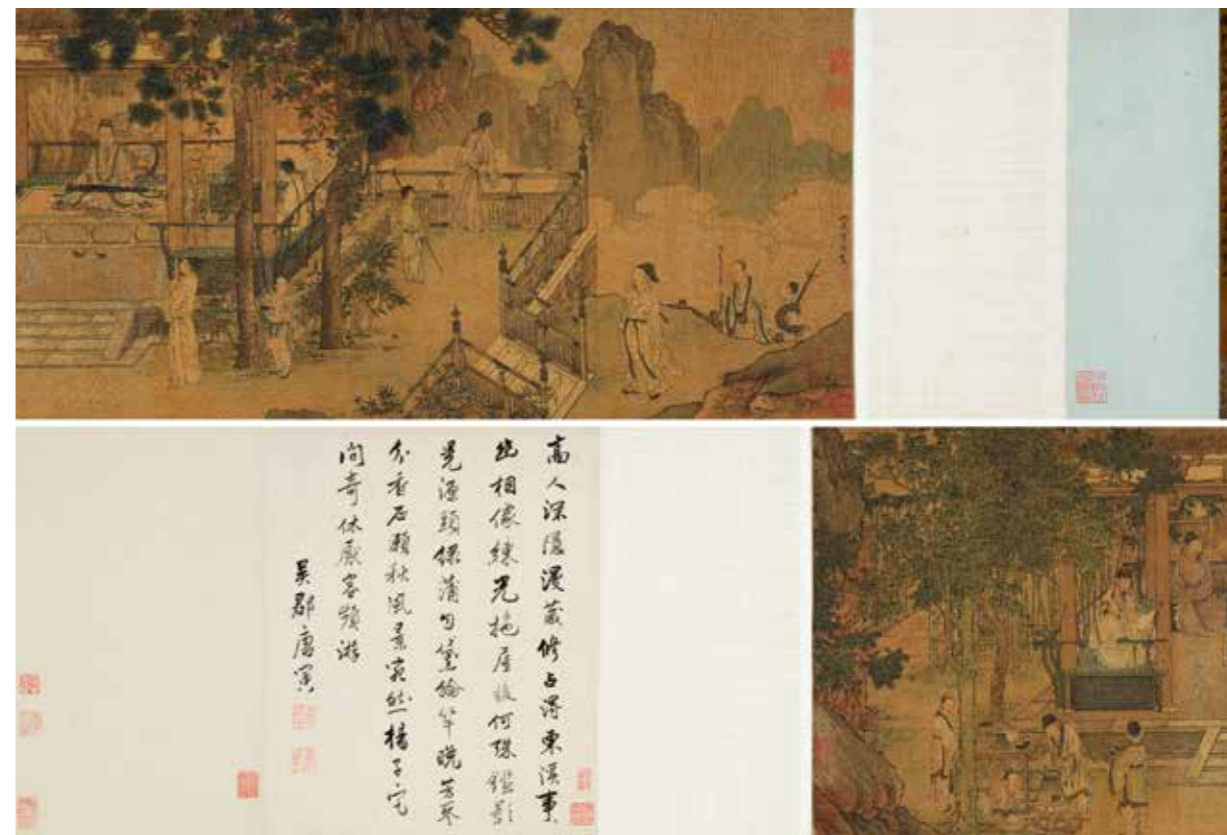 高人深隱漫藏修占得東溪事〻
幽相像練光拖屋後何殊鑑影
晃源頭綠蒲勻黛綸竿晚芳
分香石瀨秋風景宛然楊子宅
問奇休厭客頻游
吳郡唐寅